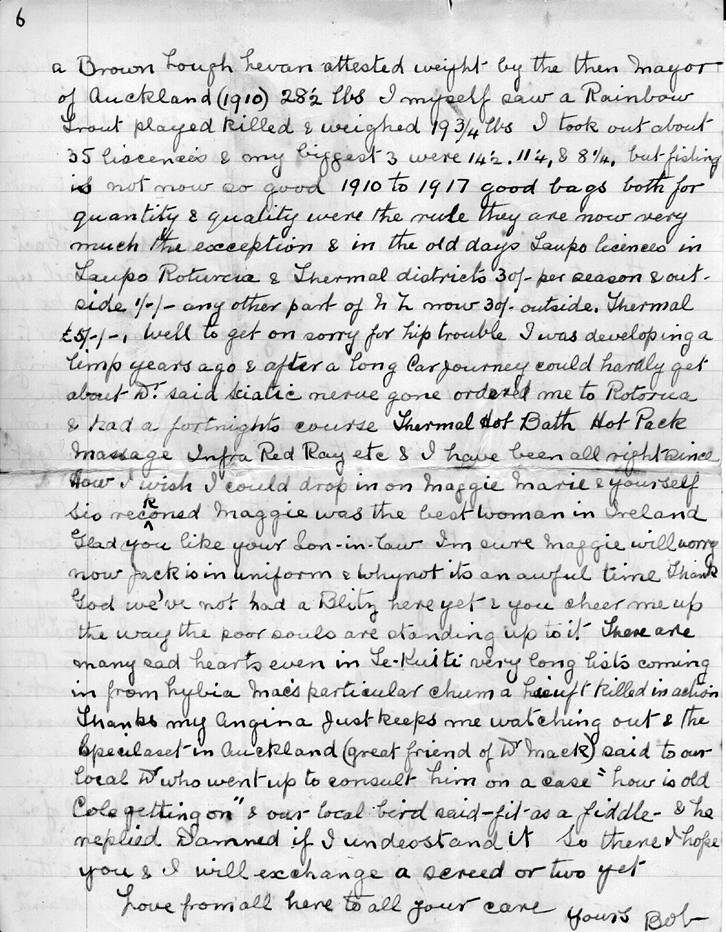 6
a Brown Lough Levan attested weight by the then Mayor
of Auckland (1910) 28½ lbs I myself saw a Rainbow
Trout played killed & weighed 19 3/4 lbs I took out about
35 liscences & my biggest 3 were 14½. 11¼, & 8¼, but fishing
is not now so good 1910 to 1917 good bags both for
quantity & quality were the rule they are now very
much the exception & in the old days Taupo licences in
Taupo Rotorua & Thermal districts 30/- per season & out-
side 1/-/- any other part of N Z now 30/- outside. Thermal
£5/-/-. Well to get on sorry for hip trouble I was developing a
limp years ago & after a long Car journey could hardly get
about Dr. said Sciatic nerve gone ordered me to Rotorua
& had a fortnights course Thermal Hot Bath Hot Pack
Massage Infra Red Ray etc & I have been all right since
How I wish I could drop in on Maggie Marie & yourself
Sis reckoned Maggie was the best woman in Ireland
Glad you like your Son-in-law I'm sure Maggie will worry
now Jack is in uniform & why not its an awful time Thank
God we've not had a Blitz here yet & you cheer me up
the way the poor souls are standing up to it There are
many sad hearts even in Te-Kuiti very long lists coming
in from Lybia Mac's particular chum a Lieuft killed in action
Thanks my Angina Just keeps me watching out & the
Specilaset in Auckland (great friend of Dr Mack) said to our
local Dr who went up to consult him on a case "how is old
Cole getting on" & our local bird said-fit-as a fiddle- & he
replied Damned if I undeostand it So there I hope
you & I will exchange a screed or two yet
Love from all here to all your care
Yours Bob